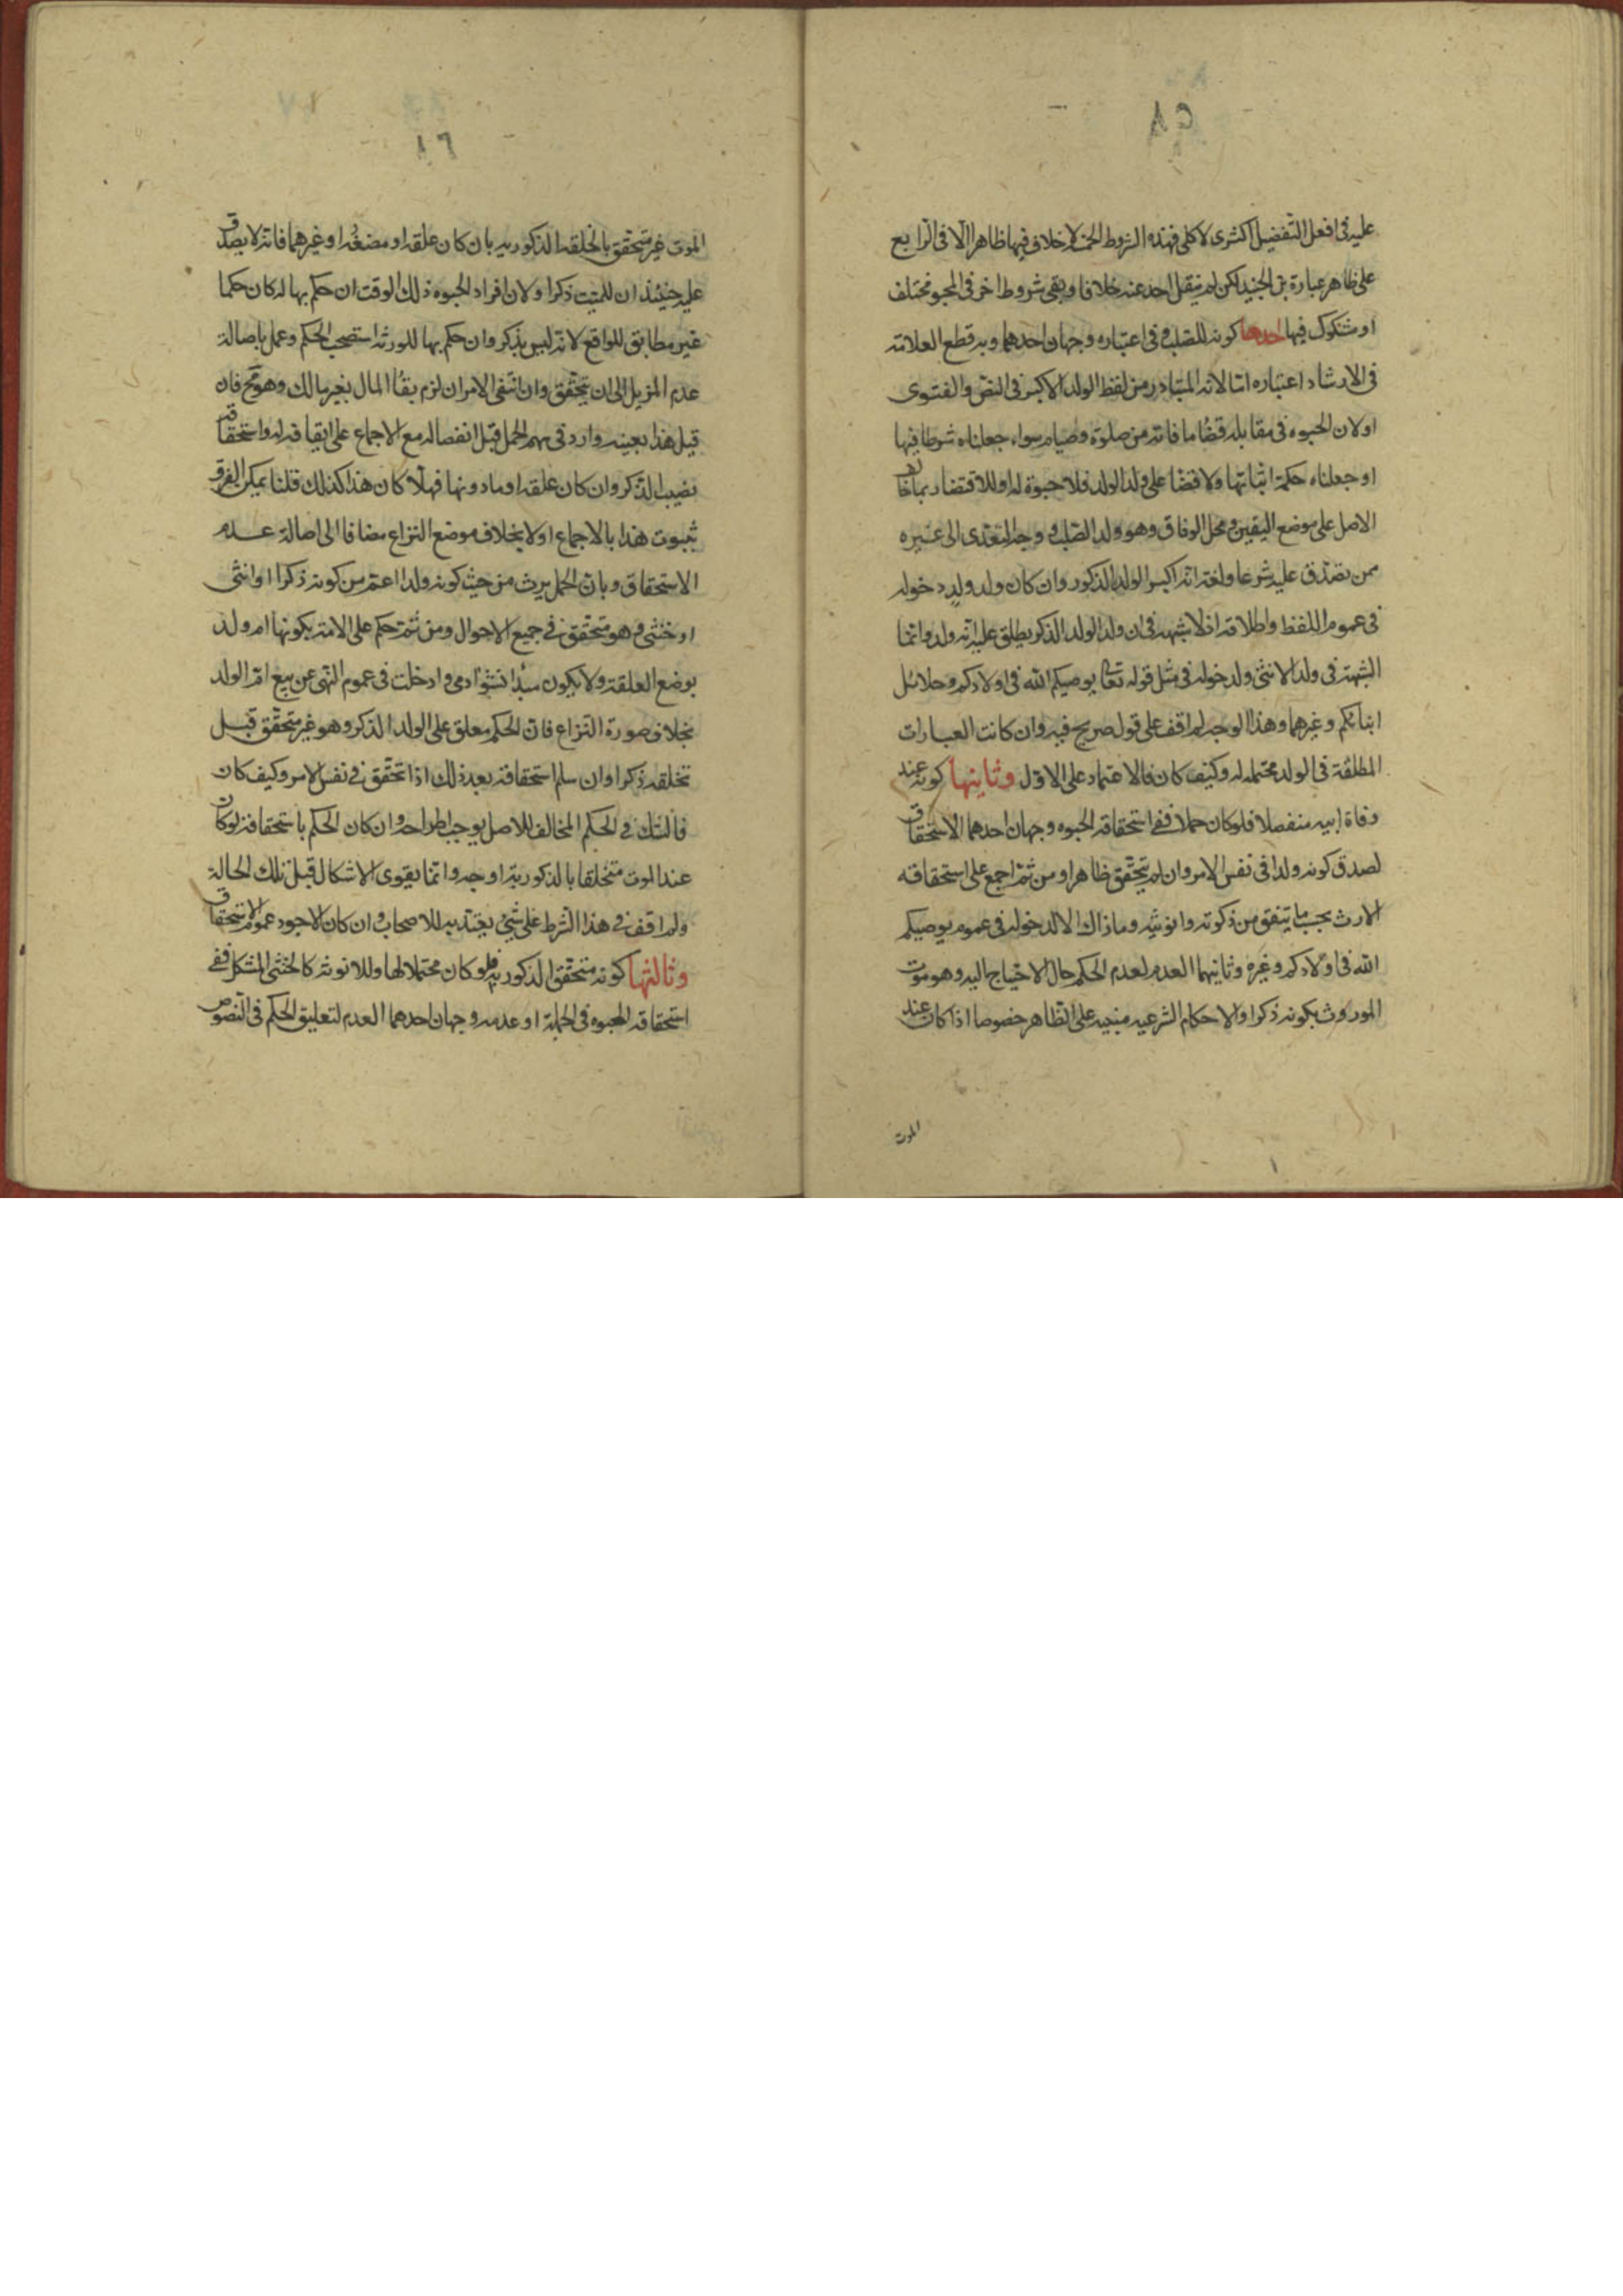 عليه فى افعل التفضيل اكثرى لا كلى فهذه الشروط الخمسة لا خلاف فيها ظاهرا الا فى الرابع
على ظاهر عبارة بن الجنيد لكن لم ينقل احد عنه خلافا وبقى شروط اخر فى المحبو مختلف
او مشكوك فيها احدها كونه للصلب وفى اعتباره وجهان احدهما وبه قطع العلامة
فى الارشاد اعتباره اما لانه المتبادر من لفظ الولد الاكبر فى النص والفتوى
او لان الحبوه فى مقابلة قضا ما فاته من صلوة وصيام سواء جعلناه شرطا فيها
او جعلناه حكمة اثباتها ولا قضا على ولد الولد فلا حبوة له او للاقتصار بما خالف
الاصل على موضع اليقين ومحل الوفاق وهو ولد الصلب ووجه التعدى الى غيره
ممن يصدق عليه شرعا ولغة انه اكبر الولد الذكور وان كان ولد ولد دخوله
فى عموم اللفظ واطلاقه اذ لا شبهه فى ان ولد الولد الذكر يطلق عليه انه ولد وانما
الشبهة فى ولد الانثى ولدخوله فى مثل قوله تعالى يوصيكم الله فى اولادكم وحلائل
ابنائكم وغيرهما وهذا الوجه لم اقف على قول صريح فيه وان كانت العبارات
المطلقة فى الولد محتملة له وكيف كان فالاعتماد على الاول وثانيها كونه عند
وفاة ابيه منفصلا فلو كان حملا ففى استحقاقه الحبوه وجهان احدهما الاستحقاق
لصدق كونه ولدا فى نفس الامر وان لم يتحقق ظاهرا ومن ثم اجمع على استحقاقه
الارث بحسب ما يتفق من ذكوته وانوثيه وما ذاك الا لدخوله فى عموم يوصيكم
الله فى اولادكم وغيره وثانيهما العدم لعدم الحكم حال الاحتياج اليه وهو موت
الموروث بكونه ذكرا والاحكام الشرعيه مبنيه على الظاهر خصوصا اذا كان عند
الموت
٨٦
الموت غير متحقق بالخلقه الذكوريه بان كان علقه او مضغه او غيرهما فانه لا يصدق
عليه حينئذ ان للميت ذكرا ولان افراد الحبوه ذلك الوقت ان حكم بها له كان حكما
غير مطابق للواقع لانه ليس بذكر وان حكم بها للورثه استصحب الحكم وعمل باصالة
عدم المزيل الى ان يتحقق وان انتفى الامران لزم بقاء المال بغير مالك وهو مح فان
قيل هذا بعينه وارد فى سهم الحمل قبل انفصاله مع الاجماع على ابقائه له واستحقاقه
نصيب الذكر وان كان علقه او ما دونها فهلا كان هذا كذلك قلنا يمكن الفرق
بثبوت هذا بالاجماع اولا بخلاف موضع النزاع مضافا الى اصالة عدم
الاستحقاق وبان الحمل يرث من حيث كونه ولدا اعم من كونه ذكرا او انثى
او خنثى وهو متحقق فى جميع الاحوال ومن ثم حكم على الامة بكونها ام ولد
بوضع العلقة ولا يكون مبدا نشو ادمى وادخلت فى عموم النهى عن بيع ام الولد
بخلاف صورة النزاع فان الحكم معلق على الولد الذكر وهو غير متحقق قبل
تخلقه ذكرا وان سلم استحقاقه بعد ذلك اذا تحقق فى نفس الامر وكيف كان
فالشك فى الحكم المخالف للاصل يوجب اطراحه وان كان الحكم باستحقاقه لو كان
عند الموت متخلقا بالذكورية اوجه وانما يقوى الاشكال قبل تلك الحالة
ولم اقف فى هذا الشرط على شئ يعتد به للاصحاب وان كان الاجود عموم الاستحقاق
وثالثها كونه متحقق الذكوريه فلو كان محتملا لها وللانوثه كالخنثى المشكل ففى
استحقاقه الحبوه فى الجملة او عدمه وجهان احدهما العدم لتعليق الحكم فى النصوص